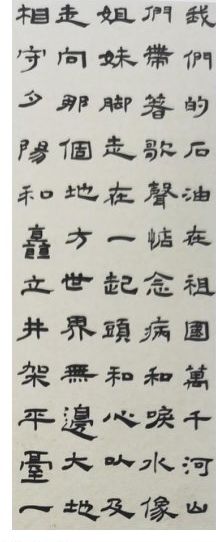 我們的石油在祖國萬千河山
們帶箸歌聲惦念病和唳水像
姐妹脚走在一起頭和心以及
走向那個地方世界無邊大地
相守夕陽和矗立井架平臺一